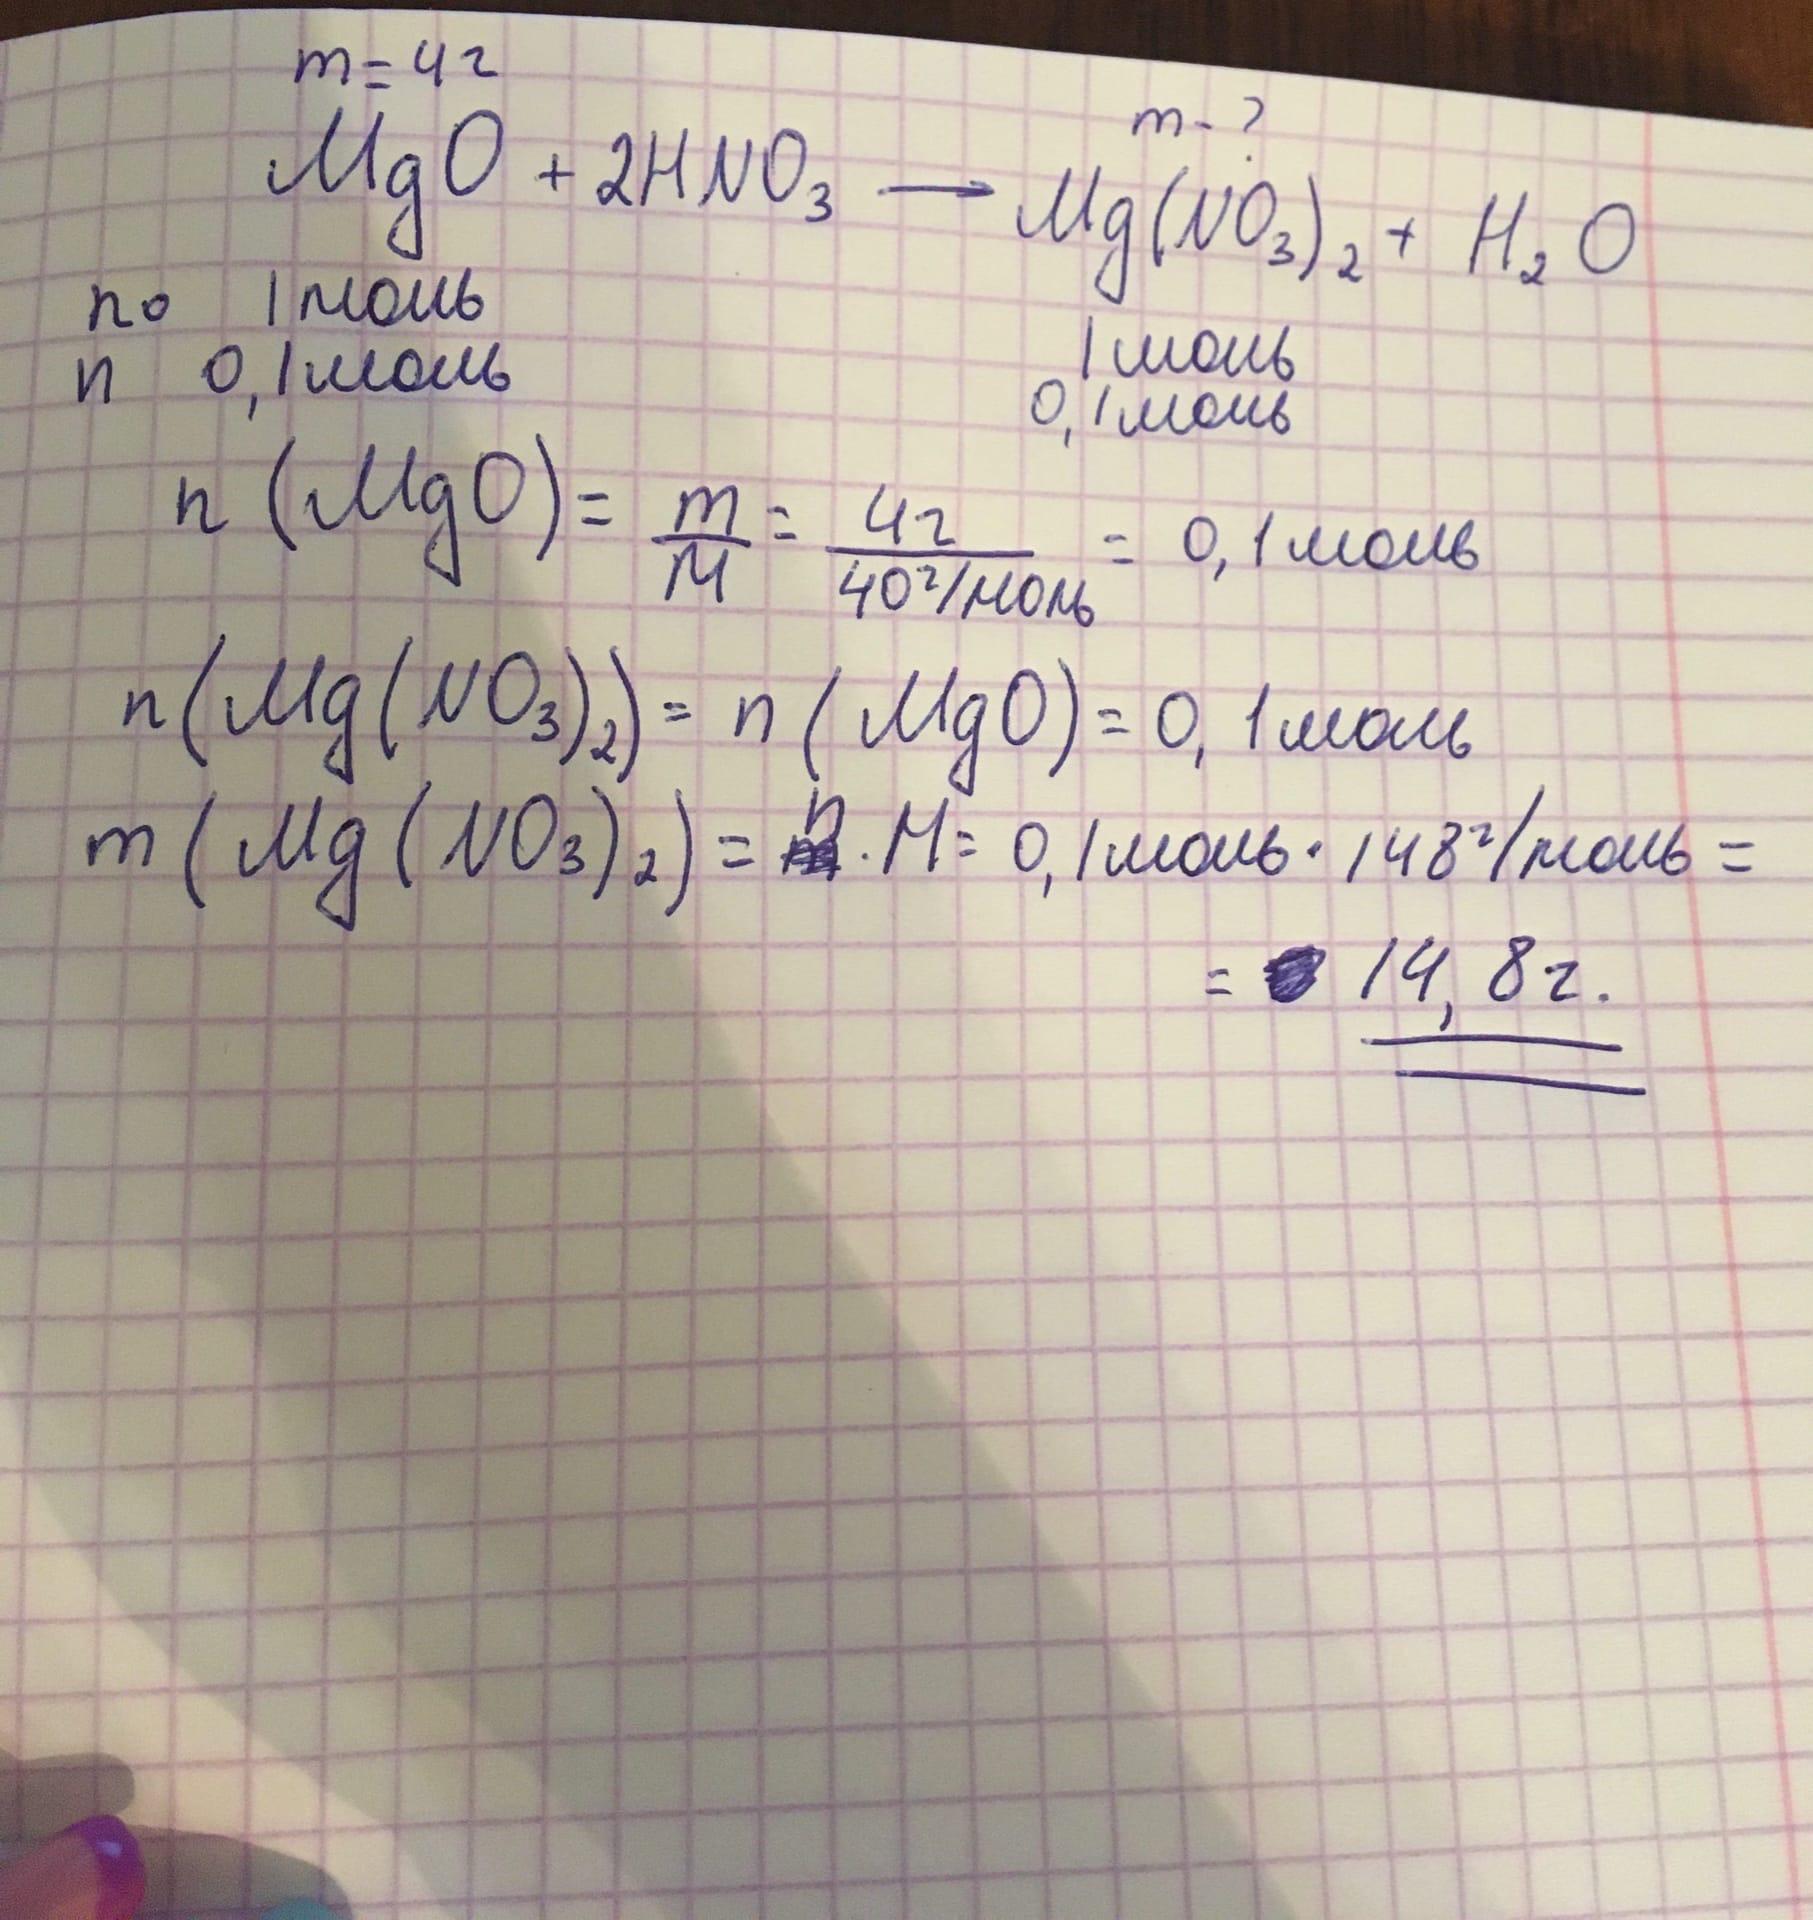 m=4г
m-?
MgO + 2HNO₃ → Mg(NO₃)₂ + H₂O
n₀ 1моль 1моль
n 0,1моль 0,1моль
n (MgO) = m/M = 4г/40г/моль = 0,1моль
n(Mg(NO₃)₂) = n (MgO) = 0,1моль
m(Mg(NO₃)₂) = n · M = 0,1моль · 148г/моль =
= 14,8г.